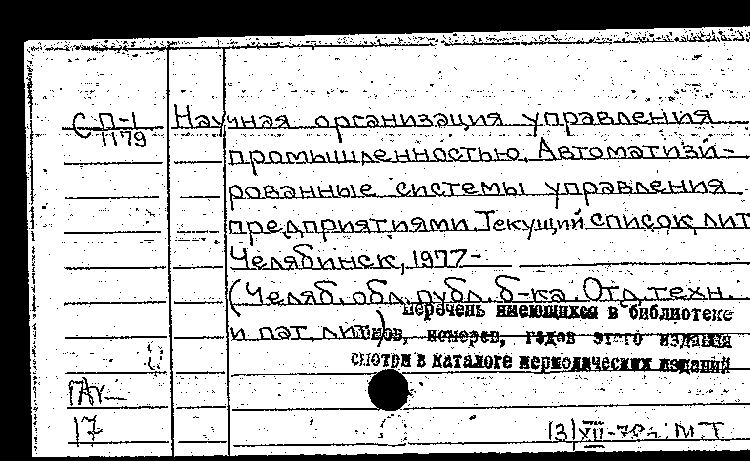 СП-1 Научная организация управления
1179
промышленностью. Автоматизи-
рованные системы управления
предприятиями. Текущий список лит
Челябинск, 1977-
(Челяб. обл. публ. б-ка. Отд. техн.
и пат. лит.)
перечень имеющихся в библиотеке
номеров, годов этого издания
смотри в каталоге периодических изданий
17